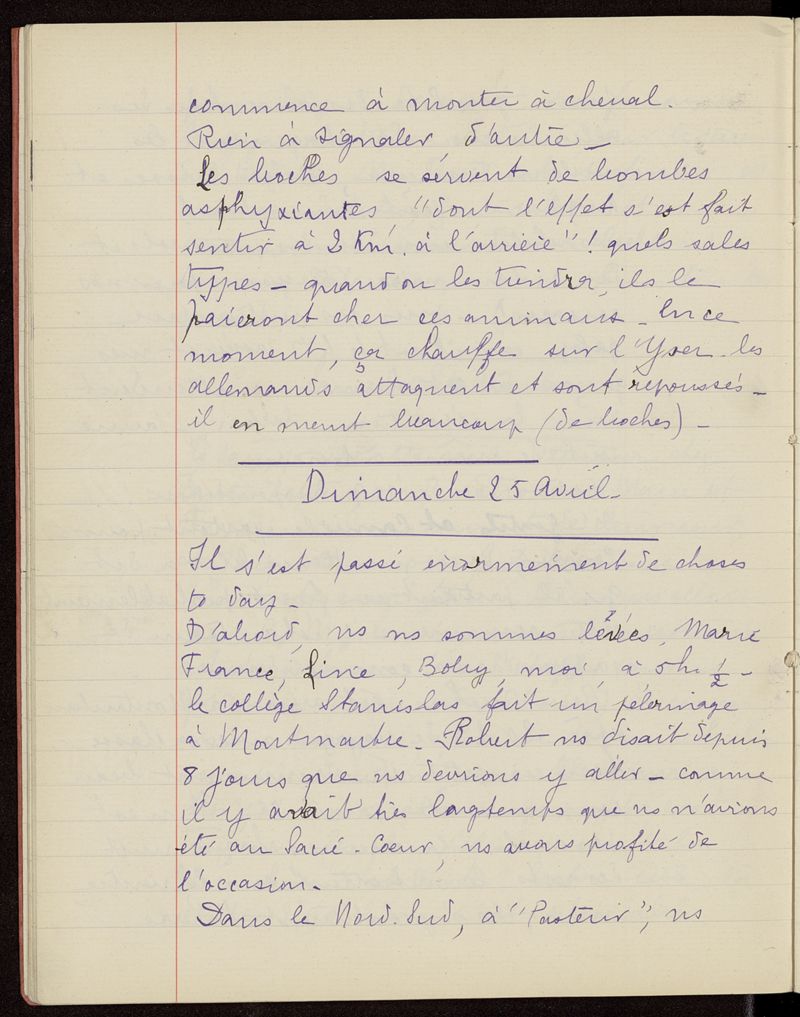 commence à monter à cheval.
Rien à signaler d'autre –
Les boches se servent de bombes
asphyxiantes "dont l'effet s'est fait
sentir à 2 Km. à l'arrière"! quels sales
types – quand on les tiendra, ils le
paieront cher ces animaux – En ce
moment, ça chauffe sur l'Yser. les
allemands attaquent et sont repoussés –
il en meurt beaucoup (de boches) –
Dimanche 25 Avril –
Il s'est passé enormement de choses
to day –
D'abord, ns ns sommes levées, Marie
France, Line, Boby, moi, à 5h 1/2 –
le collège Stanislas fait un pélerinage
à Montmartre – Robert ns disait depuis
8 jours que ns devrions y aller – comme
il y avait très longtemps que ns n'avions
été au Sacré-Coeur, ns avons profité de
l'occasion –
Dans le Nord-Sud, à "Pasteur", ns